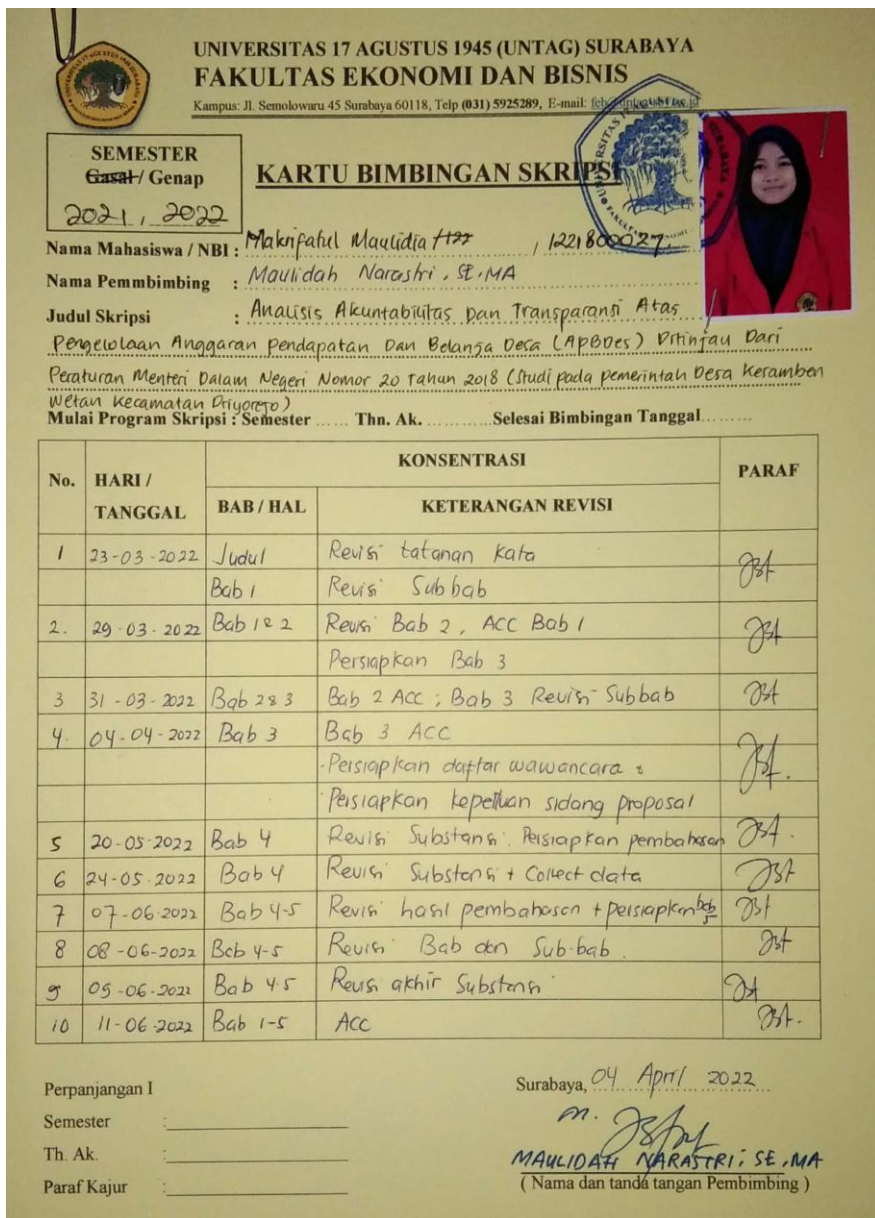 UNIVERSITAS 17 AGUSTUS 1945 (UNTAG) SURABAYA
FAKULTAS EKONOMI DAN BISNIS
Kampus: Jl. Semolowaru 45 Surabaya 60118, Telp (031) 5925289, E-mail:
SEMESTER
Gasal / Genap
2021, 2022
KARTU BIMBINGAN SKRIPSI
Nama Mahasiswa / NBI : Makrifatul Maulidia / 1221800027
Nama Pemmbimbing : Maulidah Narastri, SE.MA
Judul Skripsi : Analisis Akuntabilitas Dan Transparansi Atas
Pengelolaan Anggaran Pendapatan Dan Belanja Desa (APBDes) Ditinjau Dari
Peraturan Menteri Dalam Negeri Nomor 20 Tahun 2018 (Studi pada pemerintah Desa Keramben
Wetan Kecamatan Driyorejo)
Mulai Program Skripsi : Semester ...... Thn. Ak. ............ Selesai Bimbingan Tanggal.........
No. HARI / TANGGAL KONSENTRASI PARAF
BAB / HAL KETERANGAN REVISI
1 23-03-2022 Judul Revisi tatanan kata
Bab 1 Revisi Subbab
2. 29-03-2022 Bab 1 & 2 Revisi Bab 2, ACC Bab 1
Persiapkan Bab 3
3 31-03-2022 Bab 2 & 3 Bab 2 ACC ; Bab 3 Revisi Subbab
4. 04-04-2022 Bab 3 Bab 3 ACC
- Persiapkan daftar wawancara
- Persiapkan keperluan sidang proposal
5 20-05-2022 Bab 4 Revisi Substansi. Persiapkan pembahasan
6 24-05-2022 Bab 4 Revisi Substansi + Collect data
7 07-06-2022 Bab 4-5 Revisi hasil pembahasan + persiapkan bab 5
8 08-06-2022 Bab 4-5 Revisi Bab dan Sub-bab
9 09-06-2022 Bab 4-5 Revisi akhir Substansi
10 11-06-2022 Bab 1-5 ACC
Perpanjangan I
Semester :
Th. Ak. :
Paraf Kajur :
Surabaya, 04 April 2022
MAULIDAH NARASTRI, SE, MA
( Nama dan tanda tangan Pembimbing )